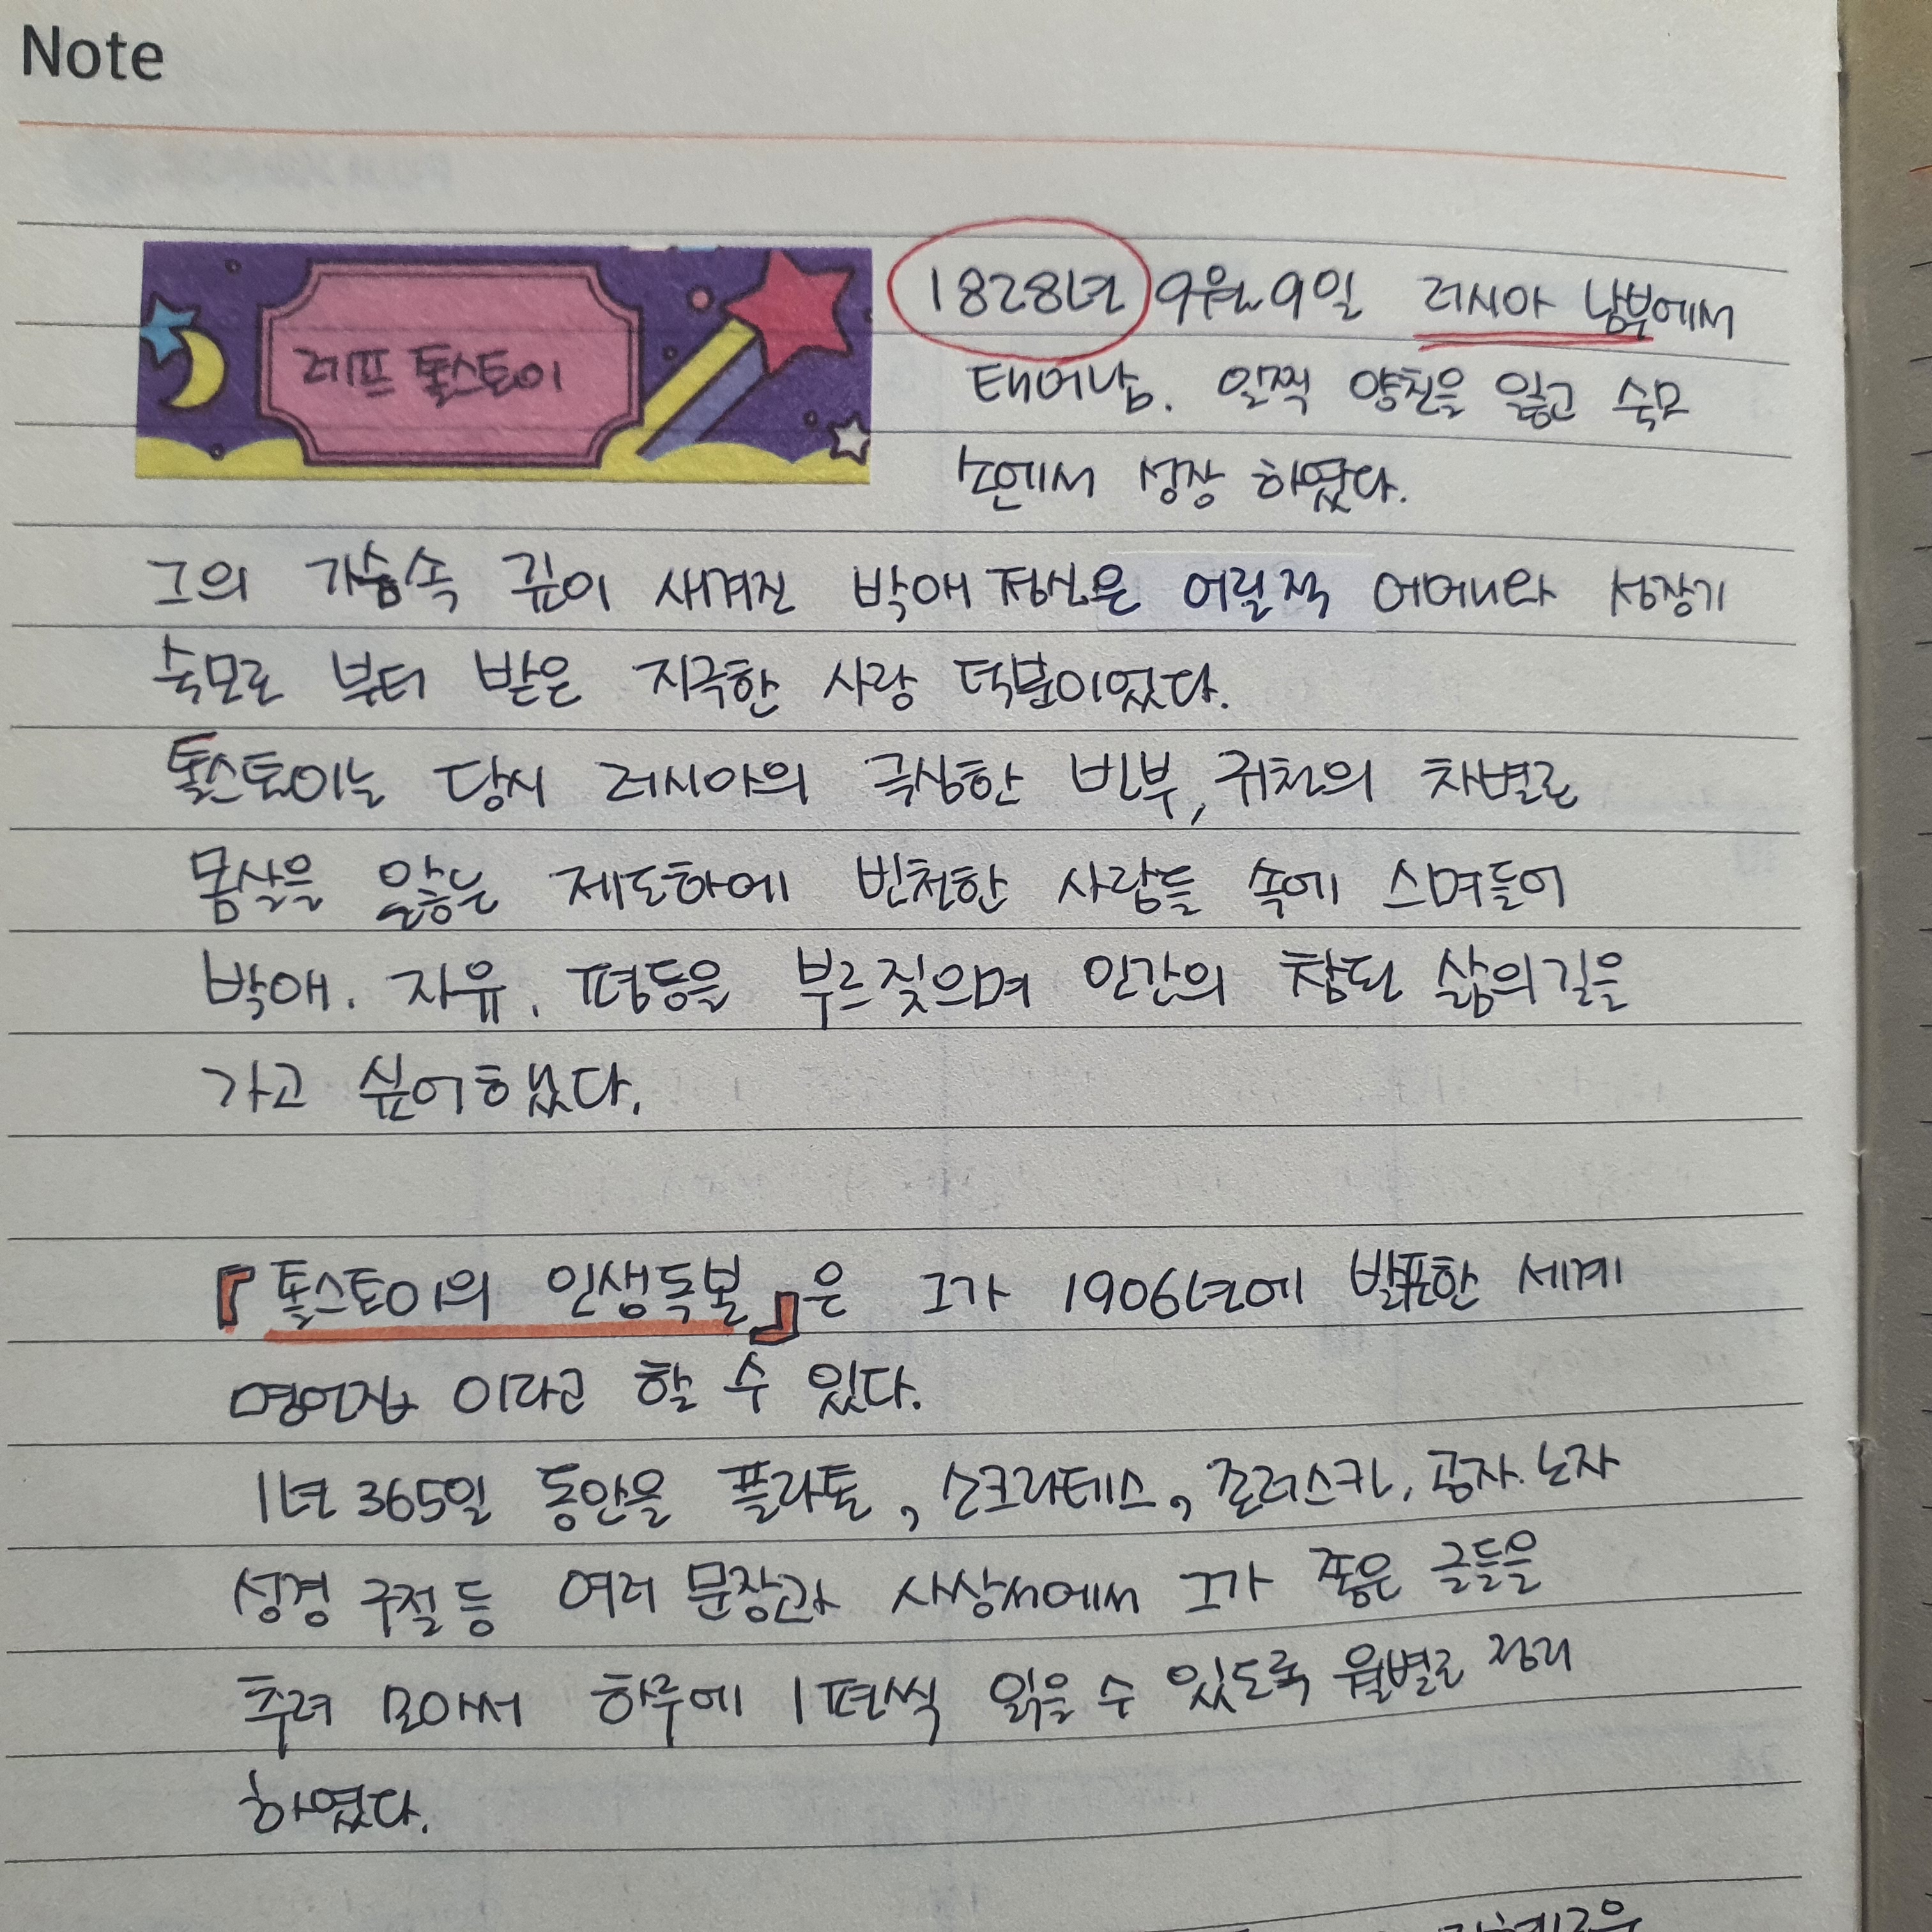 Note
레프 톨스토이
1828년 9월 9일 러시아 남부에서
태어남. 일찍 양친을 잃고 숙모
손에서 성장 하였다.
그의 가슴속 깊이 새겨진 박애 정신은 어릴적 어머니와 성장기
숙모로 부터 받은 지극한 사랑 덕분이었다.
톨스토이는 당시 러시아의 극심한 빈부, 귀천의 차별로
몸살을 앓는 제도하에 빈천한 사람들 속에 스며들어
박애. 자유. 평등을 부르짖으며 인간의 참된 삶의 길을
가고 싶어 했다.
『톨스토이의 인생독본』은 그가 1906년에 발표한 세계
명언집 이라고 할 수 있다.
1년 365일 동안을 플라톤, 소크라테스, 존러스킨, 공자. 노자
성경 구절 등 여러 문장과 사상서에서 그가 좋은 글들을
추려 모아서 하루에 1편씩 읽을 수 있도록 월별로 정리
하였다.